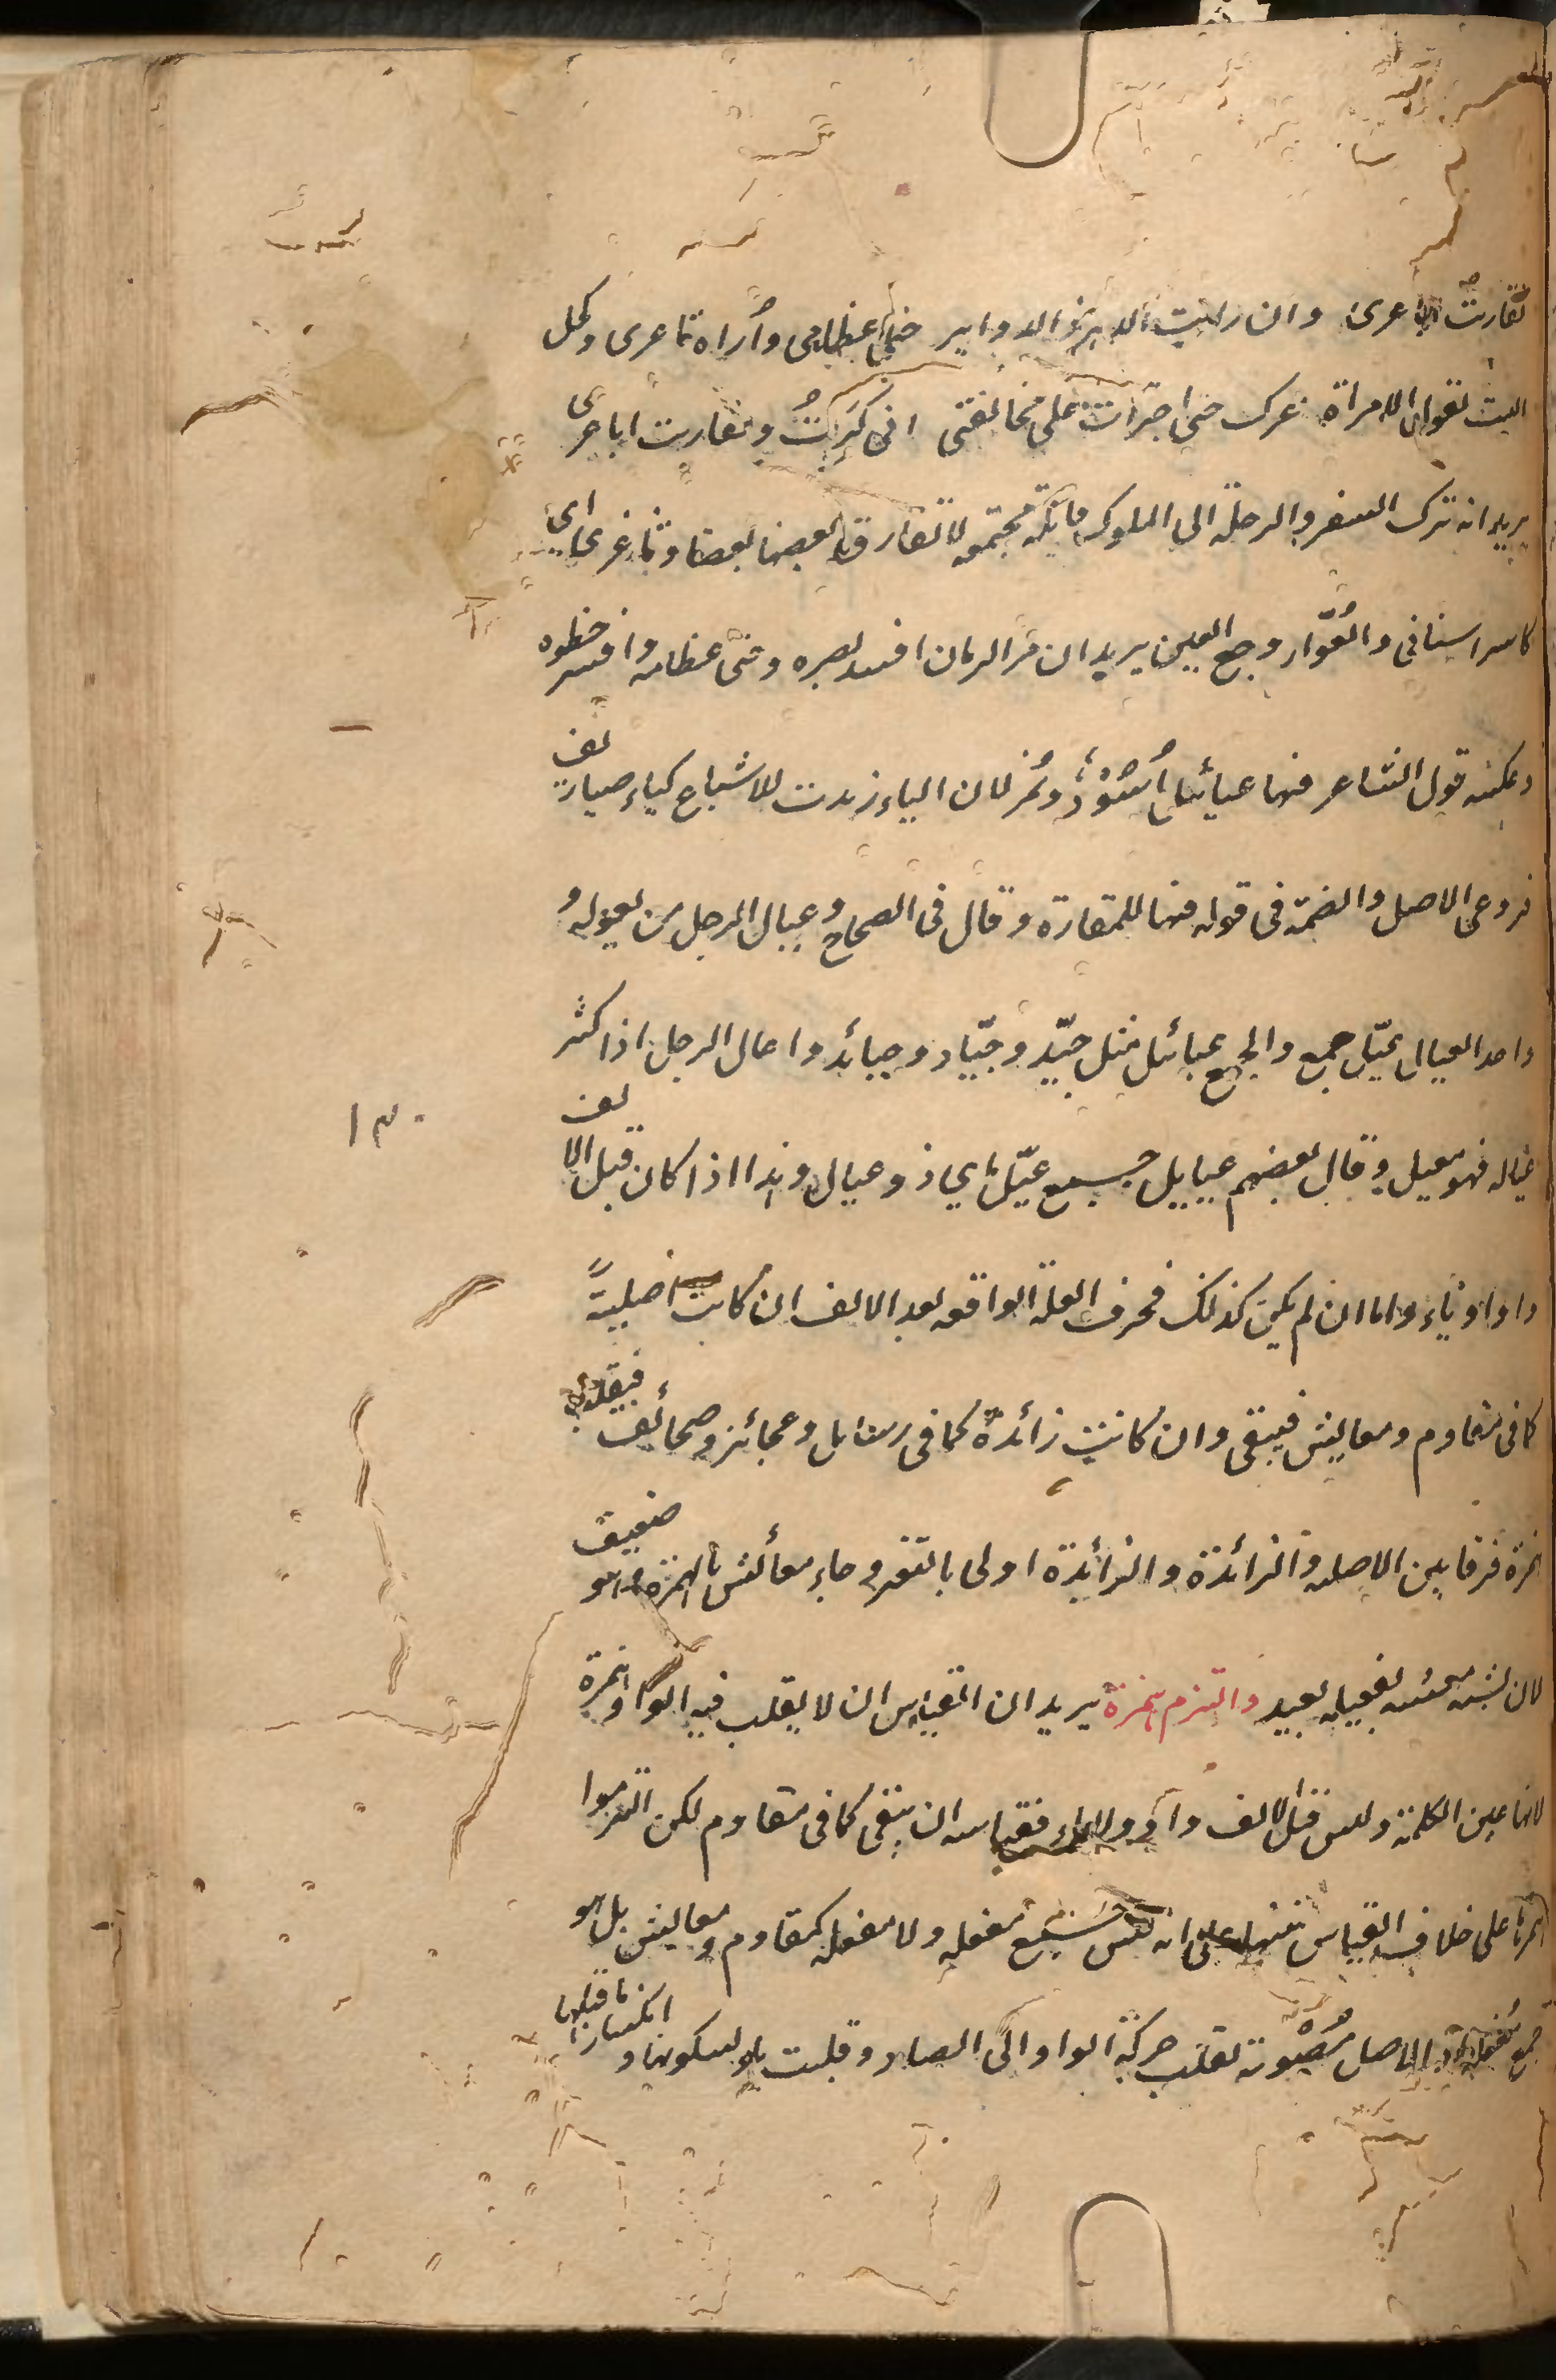 تقاربت اباعرى وان رايت الدهر ذا الدواير حنى عظامى واراه ثاغرى وكحل
البيت يقول لامراة غرك حتى اجترأت على مخالفتى انى كبرت وتقاربت اباعرى
يريد انه ترك السفر والرحلة الى الملوك فابله مجتمعة لا تفارق بعضها بعضا وثاغرى اى
كاسر اسنانى والعُوّار وجع العين يريد ان مر الزمان افسد بصره وحنى عظامه وافسد خطوه
وعكسه قول الشاعر فيها عيائيل اسود ونمر لان الياء زيدت للاشباع كياء صياريف
فروعى الاصل والضمة فى قوله فيها للمقارة وقال فى الصحاح وعيال الرجل من يعوله و
واحد العيال عيّل جمع والجمع عيائل مثل جيّد وجيّاد وجيائد واعال الرجل اذا كثر
عياله فهو معيل وقال بعضهم عياييل جمع عيّل اى ذو عيال وهذا اذا كان قبل الالف
واو او ياء واما ان لم يكن كذلك فحرف العلة الواقعة بعد الالف ان كانت اصلية
كما فى مقاوم ومعايش فيبقى وان كانت زائدة كما فى رسائل وعجائز وصحائف فيقلب
همزة فرقا بين الاصلية والزائدة والزائدة اولى بالتغير وجاء معائش بالهمزة وهو ضعيف
لان تشبيه معيشة بفعيلة بعيد والتزم همزة يريد ان القياس ان لا يقلب فيه الواو همزة
لانها عين الكلمة وليس قبل الالف واو ولا ياء فقياسه ان يبقى كما فى مقاوم لكن التزموا
همزها على خلاف القياس تنبيها على انه ليس جمع مفعلة ولا مفعلة كمقاوم ومعايش بل هو
جمع مفعلة اذ الاصل مُصْوِبة نقلت حركة الواو الى الصاد وقلبت ياء لسكونها وانكسار ما قبلها
١٣٠